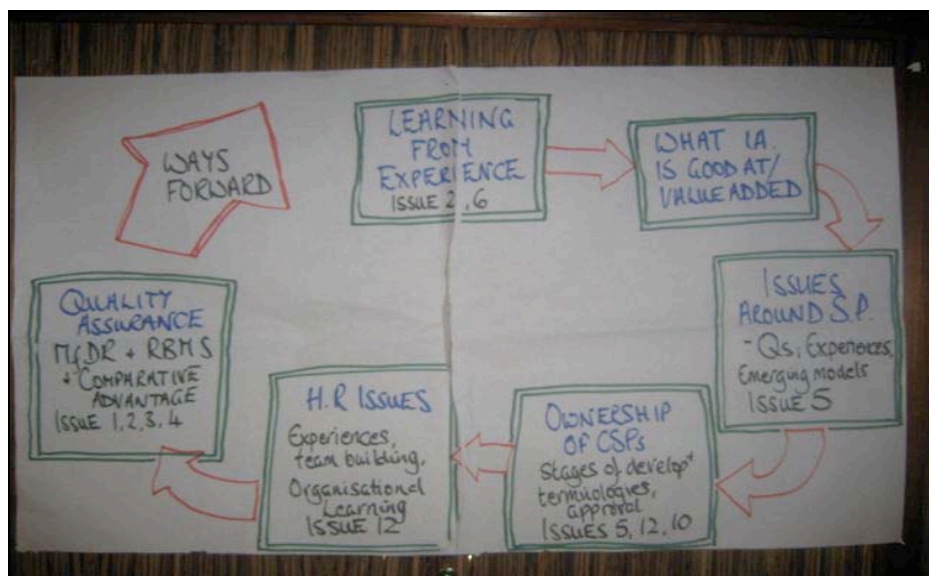 LEARNING
FROM
EXPERIENCE
ISSUE 2, 6
WHAT IA.
IS GOOD AT/
VALUE ADDED
ISSUES
AROUND S.P.
- Qs, Experiences,
Emerging models
ISSUE 5
OWNERSHIP
OF CSPs
Stages of develop^t
terminologies,
approval
ISSUES 5, 12, 10
H.R ISSUES
Experiences,
team building,
Organisational
Learning
ISSUE 12
QUALITY
ASSURANCE
MfDR + RBMS
+ COMPARATIVE
ADVANTAGE
ISSUE 1, 2, 3, 4
WAYS
FORWARD